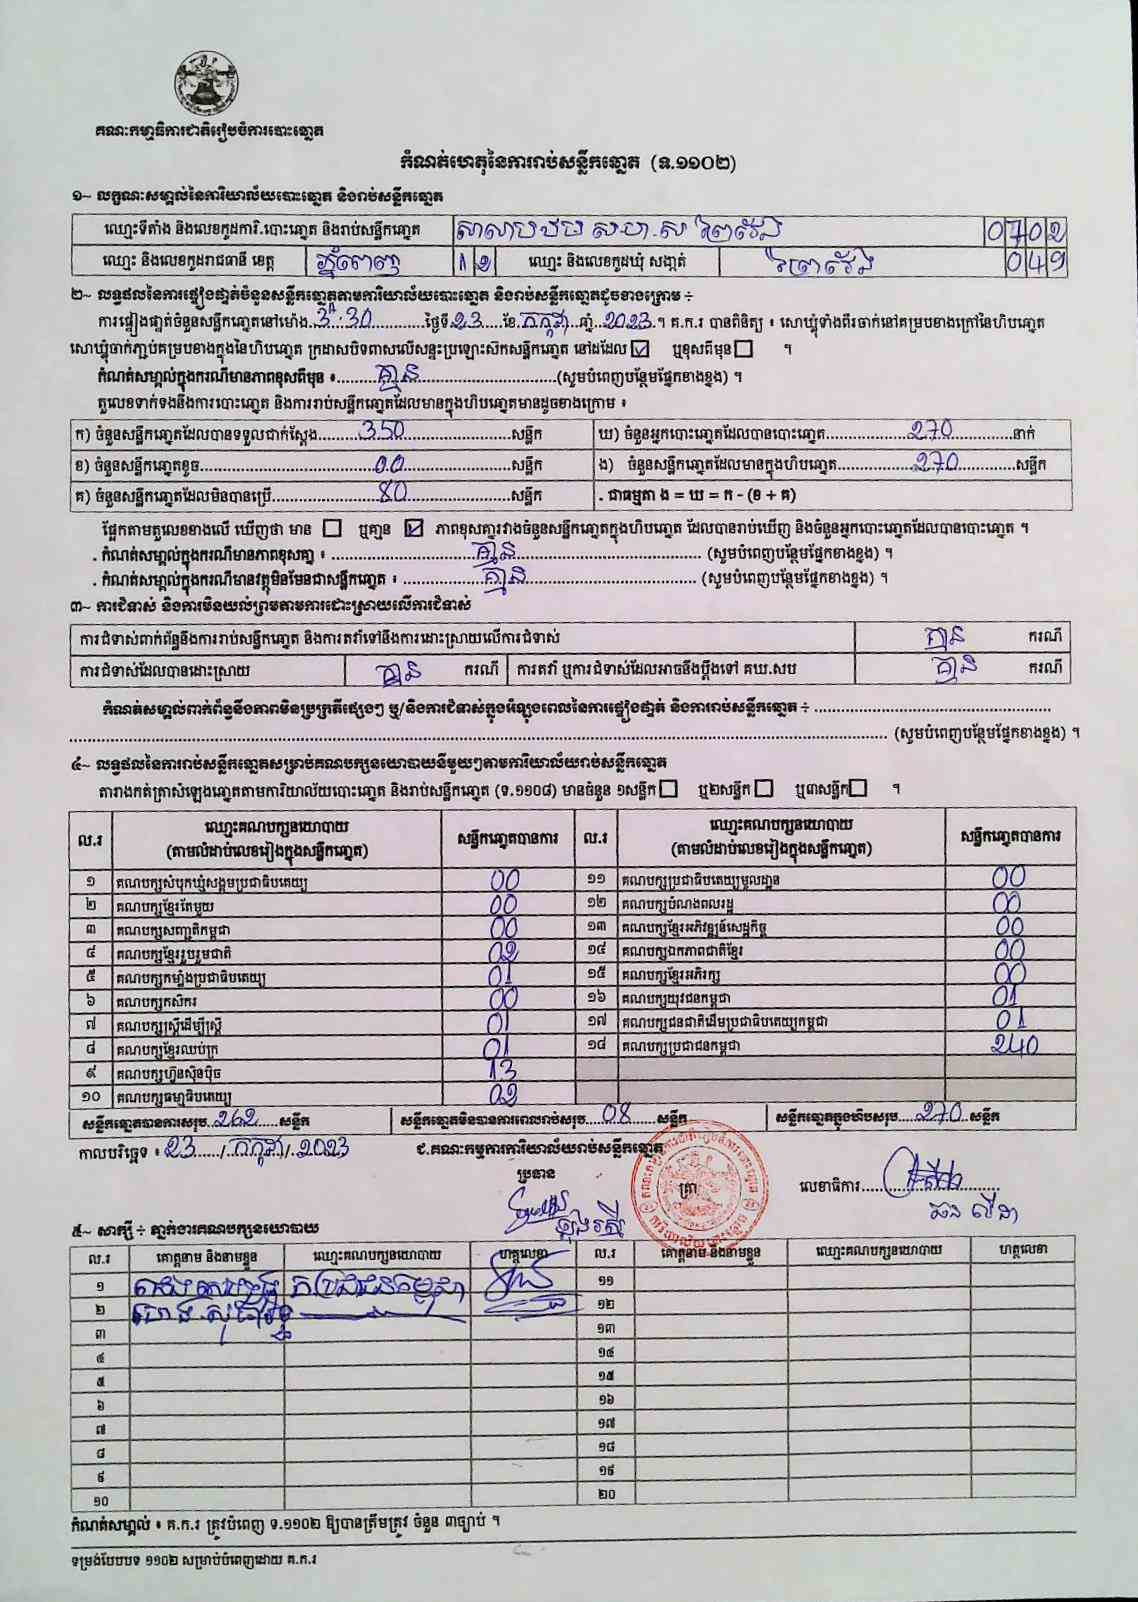 គណៈកម្មាធិការជាតិរៀបចំការបោះឆ្នោត
កំណត់ហេតុនៃការរាប់សន្លឹកឆ្នោត (ទ.១១០២)
១~ លក្ខណៈសម្គាល់នៃការិយាល័យបោះឆ្នោត និងរាប់សន្លឹកឆ្នោត
ឈ្មោះទីតាំង និងលេខកូដការិ.បោះឆ្នោត និងរាប់សន្លឹកឆ្នោត 0702
ឈ្មោះ និងលេខកូដរាជធានី ខេត្ត ភ្នំពេញ 12 ឈ្មោះ និងលេខកូដឃុំ សង្កាត់ 049
២~ លទ្ធផលនៃការផ្ទៀងផ្ទាត់ចំនួនសន្លឹកឆ្នោតតាមការិយាល័យបោះឆ្នោត និងរាប់សន្លឹកឆ្នោតដូចខាងក្រោម ÷
ការផ្ទៀងផ្ទាត់ចំនួនសន្លឹកឆ្នោតនៅម៉ោង 3:30 ថ្ងៃទី 23 ខែ កក្កដា ឆ្នាំ 2023 ។ គ.ក.រ បានពិនិត្យ ៖ សោឃ្លុំទាំងពីរចាក់នៅគម្របខាងក្រៅនៃហិបឆ្នោត
សោឃ្លុំចាក់ភ្ជាប់គម្របខាងក្នុងនៃហិបឆ្នោត ក្រដាសបិទពាសលើសន្ទះប្រឡោះស៊កសន្លឹកឆ្នោត នៅដដែល ☑ ឬខុសពីមុន ☐ ។
កំណត់សម្គាល់ក្នុងករណីមានភាពខុសពីមុន ៖ គ្មាន (សូមបំពេញបន្ថែមផ្នែកខាងខ្នង) ។
តួលេខទាក់ទងនឹងការបោះឆ្នោត និងការរាប់សន្លឹកឆ្នោតដែលមានក្នុងហិបឆ្នោតមានដូចខាងក្រោម ៖
ក) ចំនួនសន្លឹកឆ្នោតដែលបានទទួលជាក់ស្តែង 350 សន្លឹក ឃ) ចំនួនអ្នកបោះឆ្នោតដែលបានបោះឆ្នោត 270 នាក់
ខ) ចំនួនសន្លឹកឆ្នោតខូច 00 សន្លឹក ង) ចំនួនសន្លឹកឆ្នោតដែលមានក្នុងហិបឆ្នោត 270 សន្លឹក
គ) ចំនួនសន្លឹកឆ្នោតដែលមិនបានប្រើ 80 សន្លឹក . ជាធម្មតា ង = ឃ = ក - (ខ + គ)
ផ្អែកតាមតួលេខខាងលើ ឃើញថា មាន ☐ ឬគ្មាន ☑ ភាពខុសគ្នារវាងចំនួនសន្លឹកឆ្នោតក្នុងហិបឆ្នោត ដែលបានរាប់ឃើញ និងចំនួនអ្នកបោះឆ្នោតដែលបានបោះឆ្នោត ។
. កំណត់សម្គាល់ក្នុងករណីមានភាពខុសគ្នា ៖ គ្មាន (សូមបំពេញបន្ថែមផ្នែកខាងខ្នង) ។
. កំណត់សម្គាល់ក្នុងករណីមានវត្ថុមិនមែនជាសន្លឹកឆ្នោត ៖ គ្មាន (សូមបំពេញបន្ថែមផ្នែកខាងខ្នង) ។
៣~ ការជំទាស់ និងការមិនយល់ព្រមតាមការដោះស្រាយលើការជំទាស់
ការជំទាស់ពាក់ព័ន្ធនឹងការរាប់សន្លឹកឆ្នោត និងការតវ៉ាទៅនឹងការដោះស្រាយលើការជំទាស់ គ្មាន ករណី
ការជំទាស់ដែលបានដោះស្រាយ គ្មាន ករណី ការតវ៉ា ឬការជំទាស់ដែលអាចនឹងប្តឹងទៅ គឃ.សប គ្មាន ករណី
កំណត់សម្គាល់ពាក់ព័ន្ធនឹងភាពមិនប្រក្រតីផ្សេងៗ ឬ/និងការជំទាស់ក្នុងអំឡុងពេលនៃការផ្ទៀងផ្ទាត់ និងការរាប់សន្លឹកឆ្នោត ÷
(សូមបំពេញបន្ថែមផ្នែកខាងខ្នង) ។
៤~ លទ្ធផលនៃការរាប់សន្លឹកឆ្នោតសម្រាប់គណបក្សនយោបាយនីមួយៗតាមការិយាល័យរាប់សន្លឹកឆ្នោត
តារាងកត់ត្រាសំឡេងឆ្នោតតាមការិយាល័យបោះឆ្នោត និងរាប់សន្លឹកឆ្នោត (ទ.១១០៨) មានចំនួន ១សន្លឹក ☐ ឬ២សន្លឹក ☐ ឬ៣សន្លឹក ☐ ។
ល.រ ឈ្មោះគណបក្សនយោបាយ (តាមលំដាប់លេខរៀងក្នុងសន្លឹកឆ្នោត) សន្លឹកឆ្នោតបានការ ល.រ ឈ្មោះគណបក្សនយោបាយ (តាមលំដាប់លេខរៀងក្នុងសន្លឹកឆ្នោត) សន្លឹកឆ្នោតបានការ
១ គណបក្សសំបុកឃ្មុំសង្គមប្រជាធិបតេយ្យ 00 ១១ គណបក្សប្រជាធិបតេយ្យមូលដ្ឋាន 00
២ គណបក្សខ្មែរតែមួយ 00 ១២ គណបក្សបំណងពលរដ្ឋ 00
៣ គណបក្សសញ្ជាតិកម្ពុជា 00 ១៣ គណបក្សខ្មែរអភិវឌ្ឍន៍សេដ្ឋកិច្ច 00
៤ គណបក្សខ្មែររួបរួមជាតិ 02 ១៤ គណបក្សឯកភាពជាតិខ្មែរ 00
៥ គណបក្សកម្លាំងប្រជាធិបតេយ្យ 01 ១៥ គណបក្សខ្មែរអភិរក្ស 00
៦ គណបក្សកសិករ 00 ១៦ គណបក្សយុវជនកម្ពុជា 01
៧ គណបក្សស្ត្រីដើម្បីស្ត្រី 01 ១៧ គណបក្សជនជាតិដើមប្រជាធិបតេយ្យកម្ពុជា 01
៨ គណបក្សខ្មែរឈប់ក្រ 01 ១៨ គណបក្សប្រជាជនកម្ពុជា 240
៩ គណបក្សហ្វ៊ុនស៊ិនប៉ិច 13
១០ គណបក្សធម្មាធិបតេយ្យ 02
សន្លឹកឆ្នោតបានការសរុប 262 សន្លឹក សន្លឹកឆ្នោតមិនបានការពេលរាប់សរុប 08 សន្លឹក សន្លឹកឆ្នោតក្នុងហិបសរុប 270 សន្លឹក
កាលបរិច្ឆេទ ៖ 23 / កក្កដា / 2023 ជ.គណៈកម្មការការិយាល័យរាប់សន្លឹកឆ្នោត
ប្រធាន ត្រា លេខាធិការ
៥~ សាក្សី ÷ ភ្នាក់ងារគណបក្សនយោបាយ
ល.រ គោត្តនាម និងនាមខ្លួន ឈ្មោះគណបក្សនយោបាយ ហត្ថលេខា ល.រ គោត្តនាម និងនាមខ្លួន ឈ្មោះគណបក្សនយោបាយ ហត្ថលេខា
១ ១១
២ ១២
៣ ១៣
៤ ១៤
៥ ១៥
៦ ១៦
៧ ១៧
៨ ១៨
៩ ១៩
១០ ២០
កំណត់សម្គាល់ ៖ គ.ក.រ ត្រូវបំពេញ ទ.១១០២ ឱ្យបានត្រឹមត្រូវ ចំនួន ៣ច្បាប់ ។
ទម្រង់បែបបទ ១១០២ សម្រាប់បំពេញដោយ គ.ក.រ